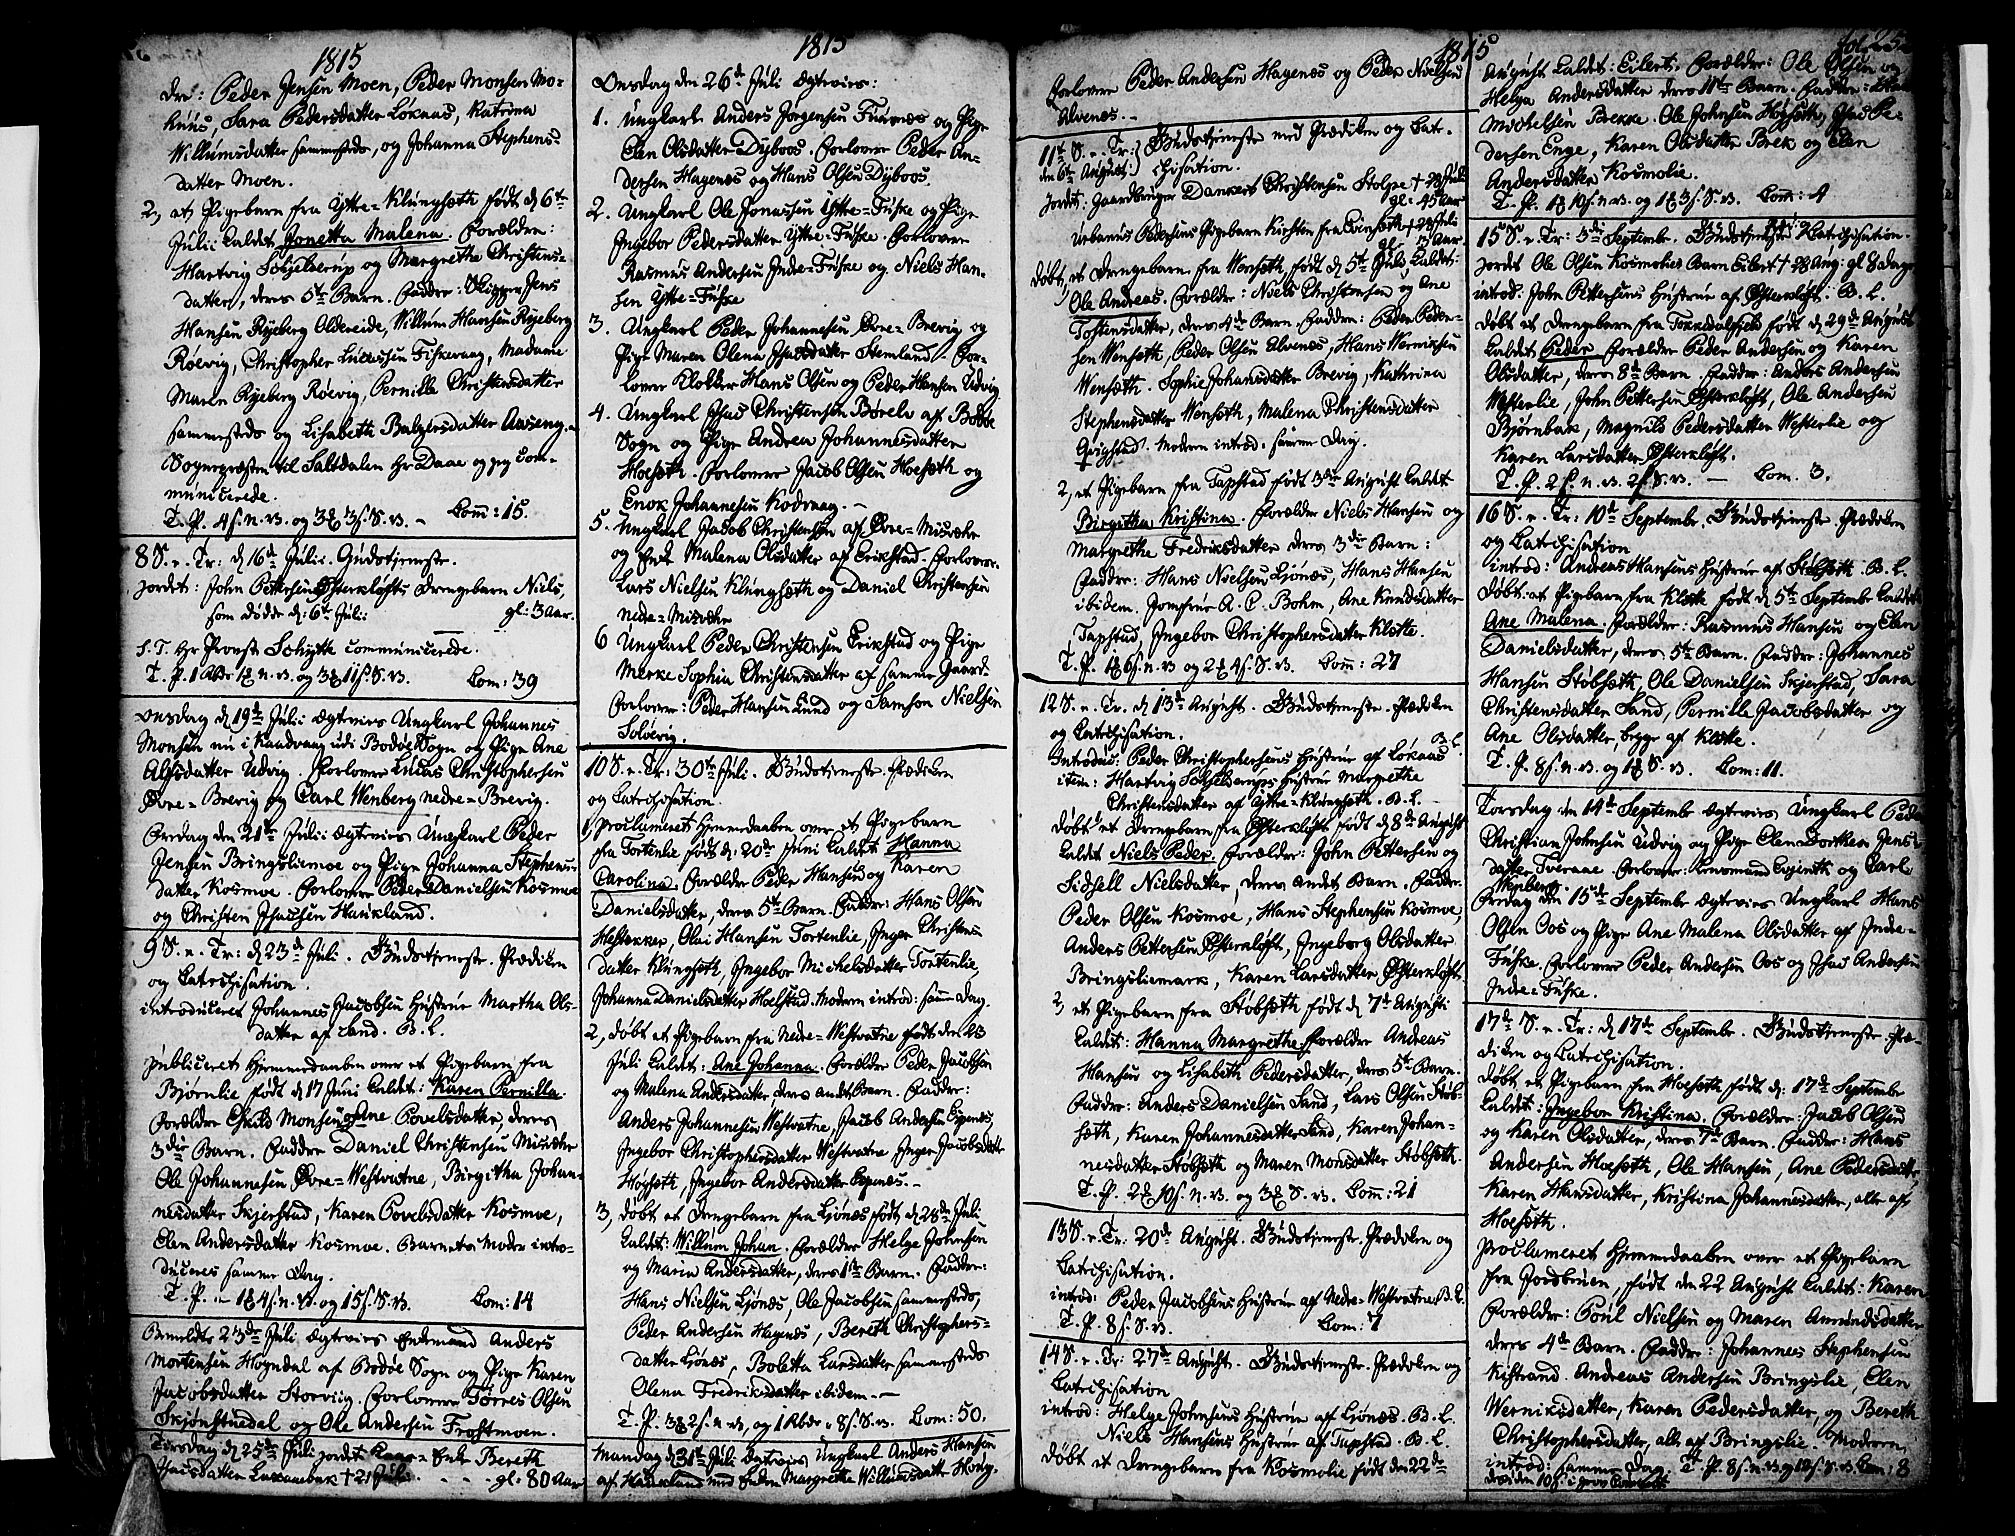 1815
dre: Peder Jensen Moen, Peder Monsen Mo-
huus, Sara Pedersdatter Løkaas, Katrina
Willumsdatter sammesteds, og Johanna Stephens-
datter Moen.
2, et Pigebarn fra Ytte-Klungsæth født d 6te
Julii kaldet Jonetta Malena. Forældre:
Hartvig Schjelderup og Margrethe Christens-
datter, deres 5te Barn. Faddre: Skipper Jens
Hansen Ryeberg Oldereide, Willum Hansen Ryeberg
Roevig, Christopher Lucassen Fiskevaag, Madame
Maren Ryeberg Røevig, Pernille Christensdatter
sammesteds og Lisabeth Baltzersdatter Aaseng.
Sognepræsten til Saltdalen Hr Daae og jeg com-
municerede.
T. P. 4 s. n. v. og 3 s. S. v. - Com: 15.
8 S. e. Tr: d 16de Julii. Gudstjeneste.
Jordet: John Pettersen Østerkløfts Drengebarn Niels,
som døde d: 6te Julii gl: 3 Aar.
S. T. Hr Provst Schytte communicerede.
Com: 39
Onsdag d 19de Julii ægtevies Ungkarl Johannes
Monsen nu i Kaadvaag udi Bodøe Sogn og Pige Ane
Alfsdatter Udvig. Forlovere Lucas Christophersen
Øvre-Brevig og Carl Wenberg nedre-Brevig.
Fredag den 21de Julii ægtevies Ungkarl Peder
Jensen Bringsliemoe og Pige Johanna Stephens-
datter Kosmoe. Forlovere Peder Danielsen Kosmoe
og Christen Isacsen Haukland.
9 S. e. Tr: d 23de Juli. Gudstjeneste. Prædiken
og Catechisation.
introduceret Johannes Jacobsen Hustrue Martha Ols-
datter af Sand. B. L.
publiceret Hjemmedaaben over et Pigebarn fra
Bjørnlie født d 17 Juni kaldet: Karen Pernilla.
Forældre Eskild Monsen og Ane Povelsdatter, deres
3die Barn. Faddre Daniel Christensen Misvær
Ole Johannesen Øvre-Westvatne, Birgitha Johan-
nesdatter Skjerstad, Karen Povelsdatter Kosmoe,
Elen Andersdatter Kosmoe. Barnets Moder intro-
duceres samme Dag.
Com: 14
Bemeldte 23de Juli ægtevies Enkemand Anders
Mortensen Høgndal af Bodøe Sogn og Pige Karen
Jacobsdatter Storviig. Forlovere Torres Olsen
Skjønstuedal og Ole Andersen Froskmoen.
Tirsdag d 25de Juli jordet Enke Bereth
Isacsdatter † 21 Juli gl: 80 Aar
1815
Onsdag den 26de Juli ægtevies:
1. Ungkarl Anders Jørgensen Furnæs og Pige
Elen Olsdatter Dyboos. Forlovere Peder An-
dersen Hagenæs og Hans Olsen Dyboos.
2. Ungkarl Ole Jonassen Ytte-Fuske og Pige
Ingebor Pedersdatter Ytte-Fuske. Forlovere
Rasmus Andersen Inde-Fuske og Niels Han-
sen Ytte-Fuske
3. Ungkarl Peder Johannesen Øvre-Brevig og
Pige Maren Olena Isacsdatter Stemland. For-
lovere Klokker Hans Olsen og Peder Hansen Udvig
4. Ungkarl Isac Christensen Børelv af Bodøe
Sogn og Pige Andrea Johannesdatter
Hoesæth. Forlovere Jacob Olsen Hoesæth og
Enok Johannesen Kodvaag.
5. Ungkarl Jacob Christensen af Øvre-Misvær
og Enke Malena Olsdatter af Erikstad. Forlovere
Lars Nielsen Klungsæth og Daniel Christensen
nedre-Misvær
6 Ungkarl Peder Christensen Erikstad og Pige
Merke Sophia Christensdatter af samme Gaard
Forlovere: Peder Hansen Lund og Samson Nielsen
Solvevig.
10 S. e. Tr: 30te Juli. Gudstjeneste. Prædiken
og Catechisation.
1, proclameret Hjemmedaaben over et Pigebarn
fra Tortenlie født d. 20de Juni kaldet Hanna
Carolina. Forældre Peder Hansen og Karen
Danielsdatter, deres 5te Barn. Faddre: Hans Olsen
Hestekker, Olai Hansen Tortenlie, Inger Christens-
datter Klungseth, Ingebor Michelsdatter Tortenlie,
Johanna Danielsdatter Hoelstad. Modern introd: samme Dag.
2, døbt et Pigebarn fra Nedre-Westvatne født den 23
Juli kaldet: Ane Johanna. Forældre Peder Jacobsen
og Malena Andersdatter deres andet Barn. Faddre:
Anders Johannesen Westvatne, Jacob Andersen Espenæs,
Ingebor Christophersdatter Westvatne Inger Jacobsdatter
Høgseth, Ingebor Andersdatter Espenæs.
3, døbt et Drengebarn fra Ljønæs født d 28de Juli
kaldet: Willum Johan. Forældre Helge Johnsen
og Maria Andersdatter, deres 1ste Barn. Faddre:
Hans Nielsen Ljønæs, Ole Jacobsen sammesteds,
Peder Andersen Hagenæs, Bereth Christophers-
datter Ljønæs, Boletta Larsdatter sammesteds
Olena Fredriksdatter ibidem.
Com: 50.
Mandag d 31te Juli ægtevies Ungkarl Anders Hansen
af Haukland med Enken Margrethe Willumsdatter Høug-
1815
Forlovere Peder Andersen Hagenæs og Peder Nielsen
Alvenes.
11te S. e. Tr: den 6te August. Gudstjeneste med Prædiken og Cate-
chisation.
Jordet: Gaardbruger Dankert Christensen Stolpe † 28 Juli
gl: 45 Aar
Urbanus Pedersens Pigebarn Kirsten fra Evinseth † 28 Juli
gl: 3 Aar
Døbt, et Drengebarn fra Wenseth, født d 5te Juli kaldet:
Ole Andreas. Forældre: Niels Christensen og Ane
Tostensdatter, deres 4de Barn. Faddre: Peder Peder-
sen Wenseth, Peder Olsen Alvenes, Hans Werniksen
Wenseth. Sophie Johansdatter Brevig, Kathrina
Stephensdatter Wenseth, Malena Christensdatter
Qvigstad. Modern introd: samme Dag.
2, et Pigebarn fra Tapstad født 3de August kaldet
Birgitha Kristina. Forældre Niels Hansen og
Margrethe Fredriksdatter deres 3die Barn:
Faddre: Hans Nielsen Ljønæs, Hans Hansen
ibidem. Jomfrue A. C. Bohm, Ane Knudsdatter
Tapstad, Ingebor Christophersdatter Kløtte.
T. P. 6 s. n. v. og 2 4 s. S. v. Com: 27
12 S. e. Tr. d 13de August. Gudstjeneste. Prædiken
og Catechisation.
Introduc: Peder Christophersens Hustrue af Løkaas B. L.
item: Hartvig Schjelderups Hustrue Margrethe
Christensdatter af Ytte-Klungseth. B. L.
Døbt et Drengebarn fra Østerkløft født d 8de August
kaldet Niels Peder. Forældre: John Pettersen og
Sidsell Nielsdatter, deres andet Barn. Faddre:
Peder Olsen Kosmoe, Hans Stephensen Kosmoe,
Anders Pettersen Østerkløft, Ingeborg Olsdatter
Bringsliemark, Karen Larsdatter Østerkløft.
2, et Pigebarn fra Støbseth født d 7de Augusti
kaldet: Hanna Margrethe. Forældre Andreas
Hansen og Lisabeth Pedersdatter, deres 5te Barn.
Faddre: Anders Danielsen Sand, Lars Olsen Støb-
sæth, Karen Johannesdatter Sand, Karen Johan-
nesdatter Støbseth og Maren Monsdatter Støbseth.
Com: 21
13 S. e. Tr: 20de August. Gudstjeneste. Prædiken og
Catechisation.
introd: Peder Jacobsens Hustrue af Nedre-Westvatne B. L.
T. P. 8 s. S. v. Com: 7
14 S. e. Tr: 27de August. Gudstjeneste. Prædiken og
Catechisation
introd: Helge Johnsens Hustrue af Ljønæs. B. L.
Niels Hansens Hustrue af Tapstad. B. L.
døbt et Drengebarn fra Kosmolie født den 22de
fol. 252
August kaldet: Eilert. Forældre: Ole Olsen og
Helga Andersdatter deres 11te Barn. Faddre:
Michelsen Brekke. Ole Johnsen Høgseth, Isac Pe-
dersen Enge, Karen Olsdatter Brek og Elen
Andersdatter Kosmolie.
Com: 4
15 S. e. Tr: 3de September. Gudstjeneste. Catechisation.
Jordet Ole Olsen Kosmolies Barn Eilert † 28 Aug: gl 8 dage
introd: John Pettersens Hustrue af Østerkløft. B. L.
Døbt et Drengebarn fra Tokkdalsfjeld født d 29de August
kaldet Peder. Forældre Peder Andersen og Karen
Olsdatter, deres 8de Barn. Faddre: Anders Andersen
Westerlie, John Pettersen Østerkløft, Ole Andersen
Bjørnbak, Magnild Pedersdatter Westerlie og
Karen Larsdatter Østerkløft.
Com. 3.
16 S. e. Tr: 10de September. Gudstjeneste. Prædiken
og Catechisation
introd: Andreas Hansens Hustrue af Støbseth. B. L.
Døbt: et Pigebarn fra Kløtte født d 5te September kaldet
Ane Malena. Forældre: Rasmus Hansen og Elen
Danielsdatter, deres 5te Barn. Faddre: Johannes
Hansen Støbseth, Ole Danielsen Skjerstad, Sara
Christensdatter Sand, Pernille Jacobsdatter og
Ane Olsdatter, begge af Kløtte.
Com: 11.
Torsdag den 14de September ægtevies Ungkarl Peder
Christian Johnsen Udvig og Pige Elen Dorthea Jens-
datter Tveraae. Forlovere: og Carl
Wenberg.
Fredag den 15de September ægtevies Ungkarl Hans
Olsen Oos og Pige Ane Malena Olsdatter af Inde-
Fuske. Forlovere Peder Andersen Oos og Isac Andersen
Inde-Fuske.
17de S. e. Tr: d 17de September. Gudstjeneste. Præ-
diken og Catechisation.
Døbt et Pigebarn fra Hoeseth født d: 17de September
kaldet: Ingebor Kristina. Forældre: Jacob Olsen
og Karen Olsdatter, deres 7de Barn. Faddre: Hans
Andersen Hoeseth, Ole Hansen, Ane Pedersdatter,
Karen Hansdatter, Kristina Johannesdatter, alle af
Hoeseth.
proclameret Hjemmedaaben over et Pigebarn
fra Jordbruen, født den 22 August kaldet: Karen
Forældre: Poul Nielsen og Maren Amundsdatter
deres 4de Barn. Faddre: Johannes Stephensen
Kistrand. Andreas Andersen Bringslie, Elen
Werniksdatter, Karen Pedersdatter, og Bereth
Christophersdatter, alle af Bringslie. Modern
introd: samme Dag. Com: 8